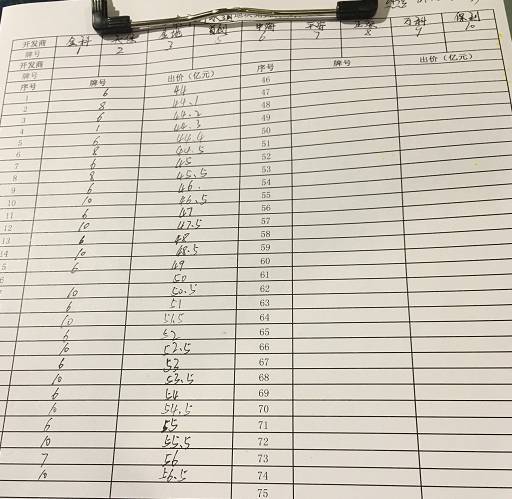 开发商 金科 金地 中海 平安 万科 保利
牌号 1 2 3 5 6 7 8 9 10
开发商
牌号
序号 牌号 出价（亿元） 序号 牌号 出价（亿元）
1 6 44 46
2 8 44.1 47
3 6 44.2 48
4 1 44.3 49
5 6 44.4 50
6 8 44.5 51
7 6 45 52
8 8 45.5 53
9 6 46. 54
10 10 46.5 55
11 6 47 56
12 10 47.5 57
13 6 48 58
14 10 48.5 59
5 6 49 60
50 61
10 50.5 62
6 51 63
10 51.5 64
6 52 65
10 52.5 66
6 53 67
10 53.5 68
6 54 69
10 54.5 70
6 55 71
10 55.5 72
7 56 73
10 56.5 74
75